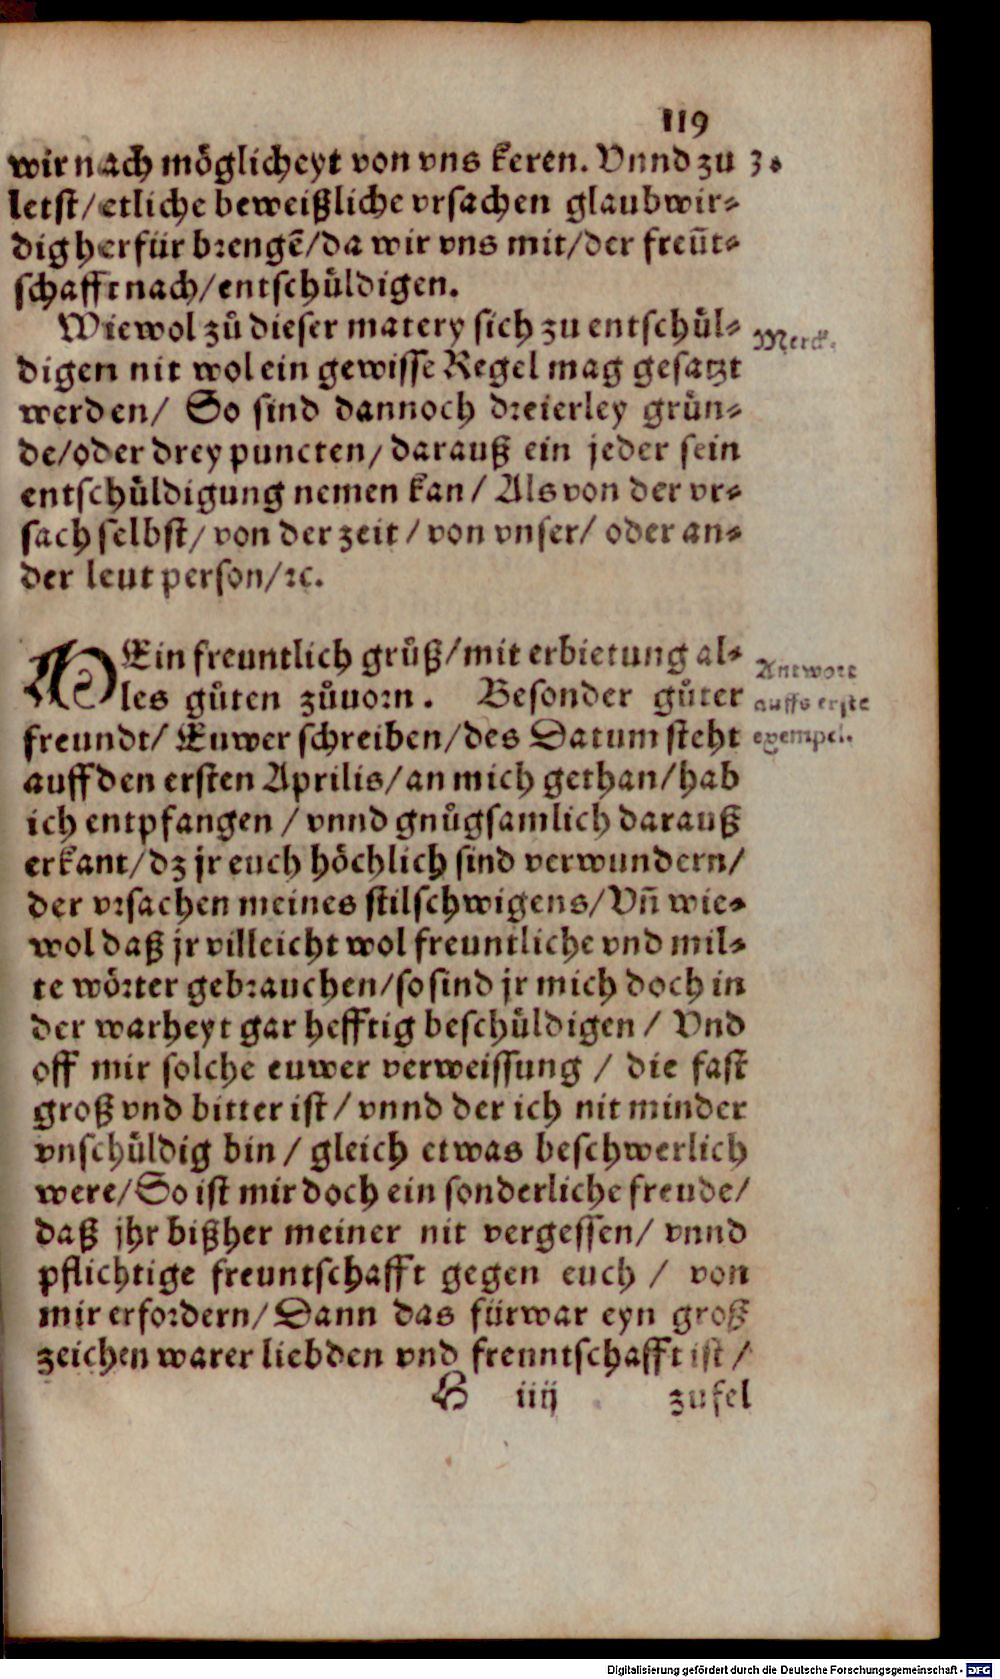 119
wir nach möglicheyt von vns keren. Vnnd zu 3.
letst/etliche beweißliche vrsachen glaubwir⸗
dig herfür brengẽ/da wir vns mit/der freũt⸗
schafft nach/entschůldigen.
Wiewol zů dieser matery sich zu entschůl⸗
Merck.
digen nit wol ein gewisse Regel mag gesatzt
werden/ So sind dannoch dreierley grůn⸗
de/oder drey puncten/darauß ein jeder sein
entschůldigung nemen kan/ Als von der vr⸗
sach selbst/ von der zeit/ von vnser/ oder an⸗
der leut person/ꝛc.
MEin freuntlich grůß/mit erbietung al⸗
Antwort
les gůten zůuorn. Besonder gůter
auffs erste
freundt/ Euwer schreiben/des Datum steht
exempel.
auff den ersten Aprilis/an mich gethan/hab
ich entpfangen/ vnnd gnůgsamlich darauß
erkant/dz jr euch höchlich sind verwundern/
der vrsachen meines stilschwigens/Vñ wie⸗
wol daß jr villeicht wol freuntliche vnd mil⸗
te wörter gebrauchen/so sind jr mich doch in
der warheyt gar hefftig beschůldigen/ Vnd
off mir solche euwer verweissung / die fast
groß vnd bitter ist/ vnnd der ich nit minder
vnschůldig bin / gleich etwas beschwerlich
were/So ist mir doch ein sonderliche freude/
daß jhr bißher meiner nit vergessen/ vnnd
pflichtige freuntschafft gegen euch / von
mir erfordern/Dann das fürwar eyn groß
zeichen warer liebden vnd frenntschafft ist /
H iiij zufel
Digitalisierung gefördert durch die Deutsche Forschungsgemeinschaft - DFG